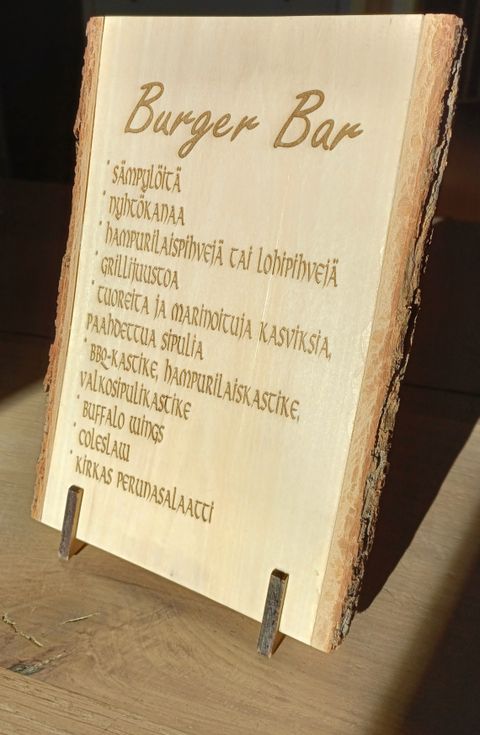 Burger Bar
* sämpylöitä
* nyhtökanaa
* hampurilaispihvejä tai lohipihvejä
* grillijuustoa
* tuoreita ja marinoituja kasviksia,
paahdettua sipulia
* BBQ-kastike, hampurilaiskastike,
valkosipulikastike
* buffalo wings
* coleslaw
* kirkas perunasalaatti